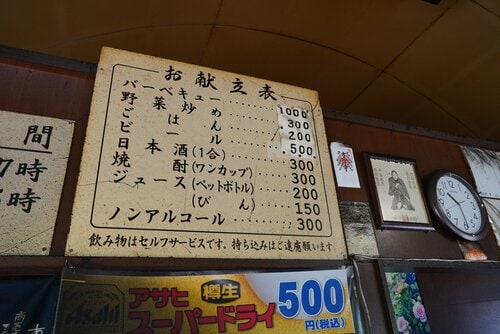 お献立表
バーベキュー 1000
野菜炒め 300
ごはん 200
ビール 500
日本酒(1合) 300
焼酎(ワンカップ) 300
ジュース(ペットボトル) 200
(びん) 150
ノンアルコール 300
飲み物はセルフサービスです、持ち込みはご遠慮願います
間
時
時
Asahi
アサヒ 樽生
スーパードライ
500
円(税込)